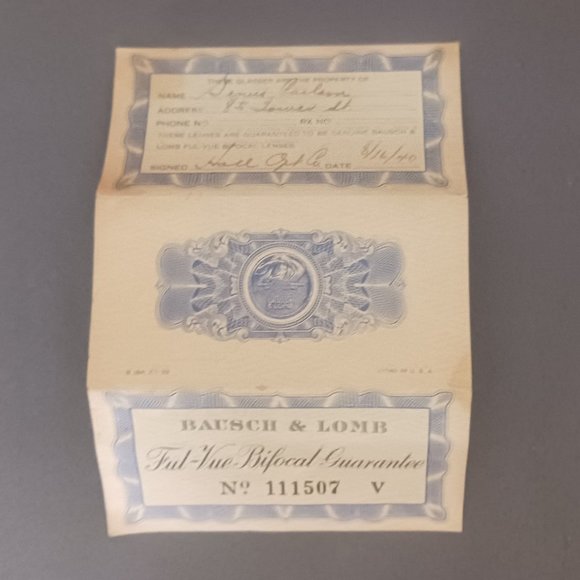 THESE GLASSES ARE THE PROPERTY OF
NAME Carlson
ADDRESS 85 Tower St
PHONE NO. RX NO.
THESE LENSES ARE GUARANTEED TO BE GENUINE BAUSCH &
LOMB FUL-VUE BIFOCAL LENSES
SIGNED Hall Opt Co DATE 8/16/40
LITHO IN U.S.A.
BAUSCH & LOMB
Ful-Vue Bifocal Guarantee
Nº 111507 V